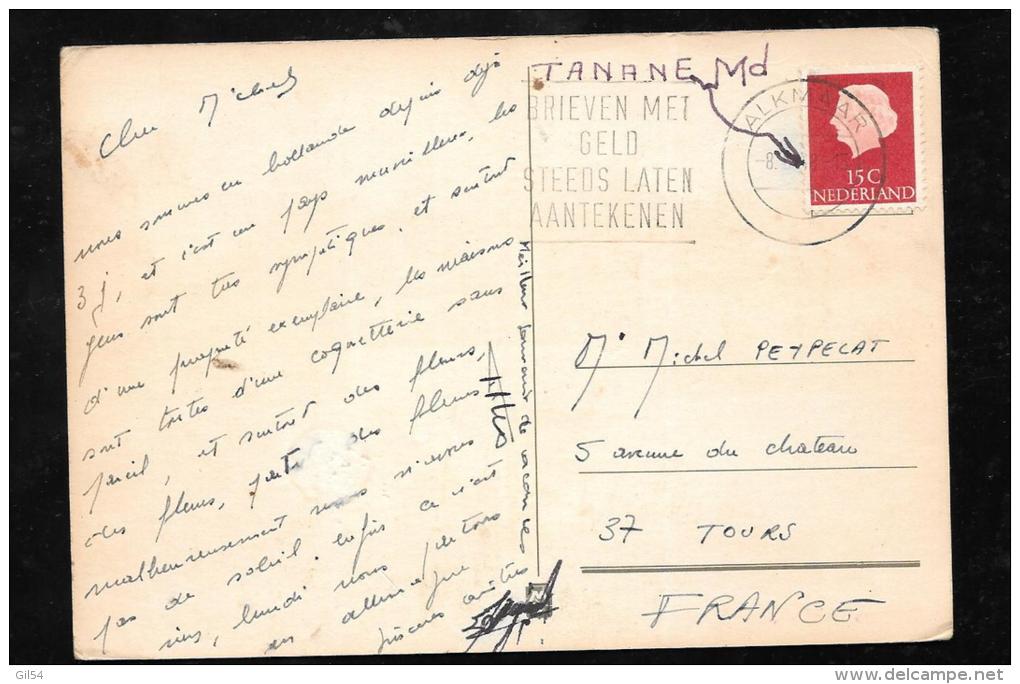 Cher Michel
nous sommes en hollande depuis déjà
3 j, et c'est un pays merveilleux, les
gens sont très sympatiques. et surtout
d'une propreté exemplaire, les maisons
sont toutes d'une coquetterie sans
pareil, et surtout des fleurs,
des fleurs, partout des fleurs,
malheureusement nous n'avons
pas de soleil. enfin ce n'est
rien, lundi nous partons
en allemagne
Meilleur souvenir de vacances
TANANE Md
BRIEVEN MET
GELD
STEEDS LATEN
AANTEKENEN
ALKMAAR
-8.
15 C
NEDERLAND
Mr Michel PEYPELAT
5 avenue du chateau
37 TOURS
FRANCE
Gil54
www.delcampe.net